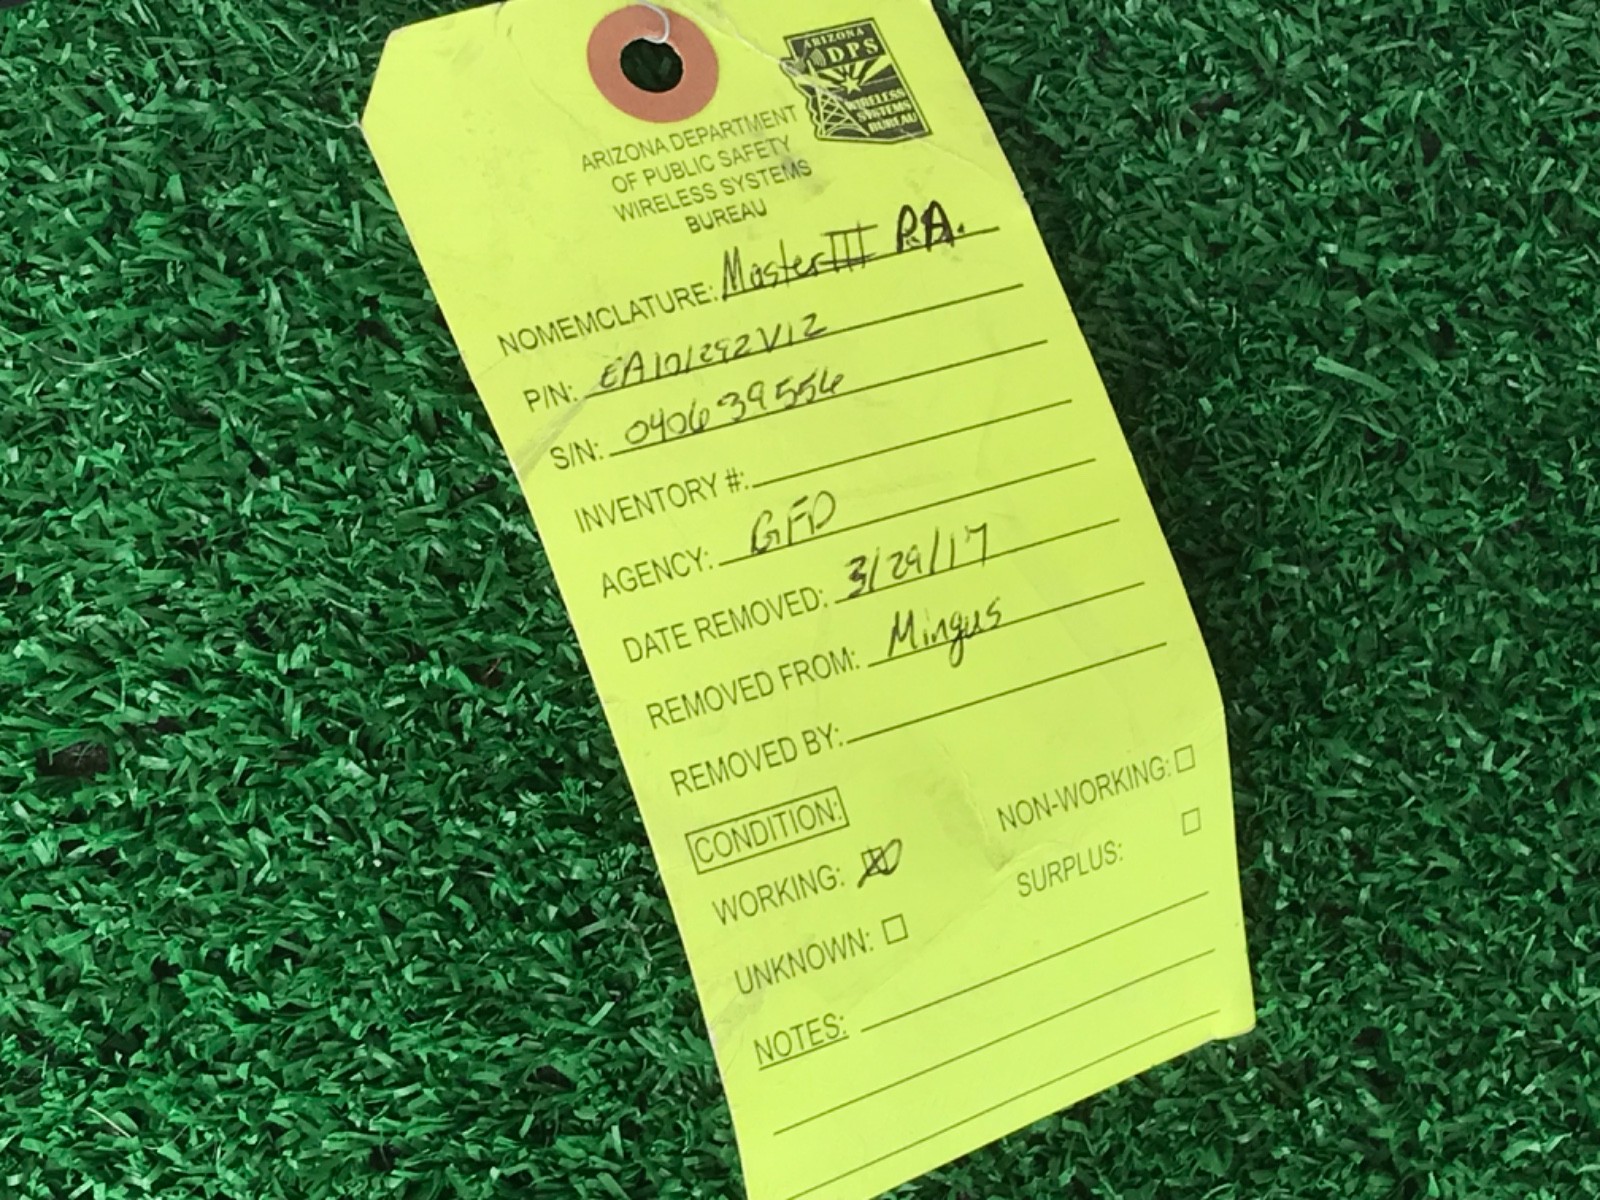 ARIZONA
DPS
WIRELESS
SYSTEMS
BUREAU
ARIZONA DEPARTMENT
OF PUBLIC SAFETY
WIRELESS SYSTEMS
BUREAU
NOMEMCLATURE: Master III P.A.
P/N: EA101292V12
S/N: 0406 39556
INVENTORY #:
AGENCY: GFD
DATE REMOVED: 3/29/17
REMOVED FROM: Mingus
REMOVED BY:
CONDITION:
WORKING: NON-WORKING:
UNKNOWN: SURPLUS:
NOTES: